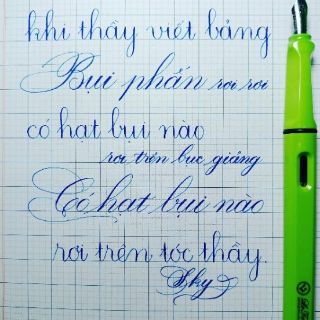 khi thầy viết bảng
Bụi phấn rơi rơi
có hạt bụi nào
rơi trên bục giảng
Có hạt bụi nào
rơi trên tóc thầy.